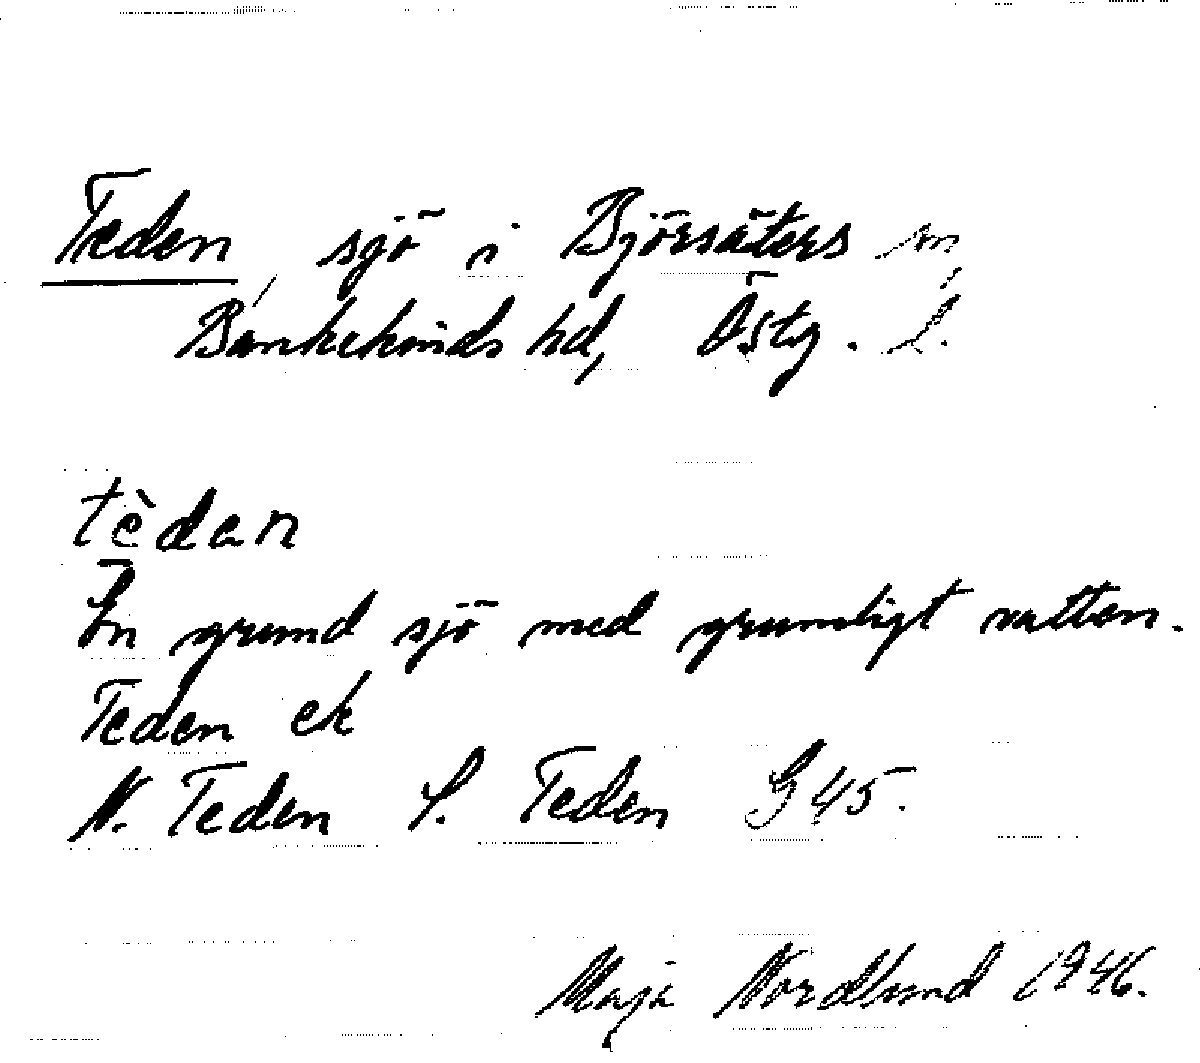 Teden, sjö i Björsäters sn,
Bankekinds hd, Östg. l.
tèdan
En grund sjö med grumligt vatten.
Teden ek
N. Teden S. Teden G 45.
Maja Nordlund 1946.